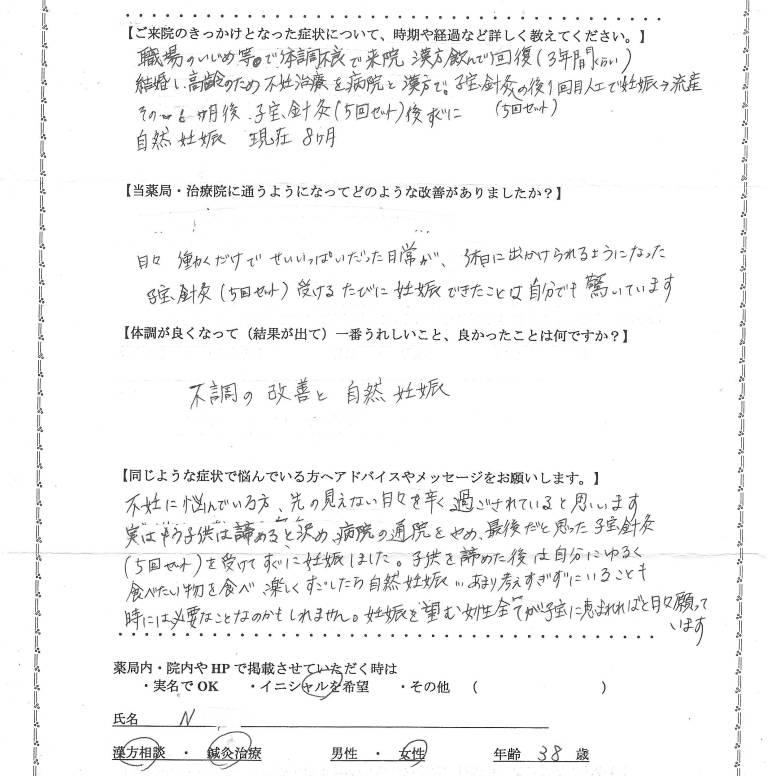 【ご来院のきっかけとなった症状について、時期や経過など詳しく教えてください。】
職場のいじめ等。で体調不良で来院 漢方飲んで回復(3年間くらい)
結婚し高齢のため不妊治療を病院と漢方で。子宝鍼灸の後1回目人工で妊娠→流産
(5回セット)
その 6ヶ月後、子宝鍼灸(5回セット)後すぐに
自然妊娠 現在8ヶ月
【当薬局・治療院に通うようになってどのような改善がありましたか?】
日々 働くだけでせいいっぱいだった日常が、休日に出かけられるようになった
子宝鍼灸(5回セット)受けるたびに妊娠できたことは自分でも驚いています
【体調が良くなって(結果が出て)一番うれしいこと、良かったことは何ですか?】
不調の改善と 自然妊娠
【同じような症状で悩んでいる方へアドバイスやメッセージをお願いします。】
不妊に悩んでいる方、先の見えない日々を辛く過ごされていると思います
実はもう子供は諦めると決め、病院の通院をやめ、最後だと思った子宝鍼灸
(5回セット)を受けてすぐに妊娠しました。子供を諦めた後は自分にゆるく
食べたい物を食べ 楽しくすごしたら自然妊娠… あまり考えすぎずにいることも
時には必要なことなのかもしれません。妊娠を望む女性全てが子宝に恵まれればと日々願って
います
薬局内・院内やHPで掲載させていただく時は
・実名でOK ・イニシャルを希望 ・その他 ( )
氏名 N
漢方相談 ・ 鍼灸治療 男性 ・ 女性 年齢 38 歳